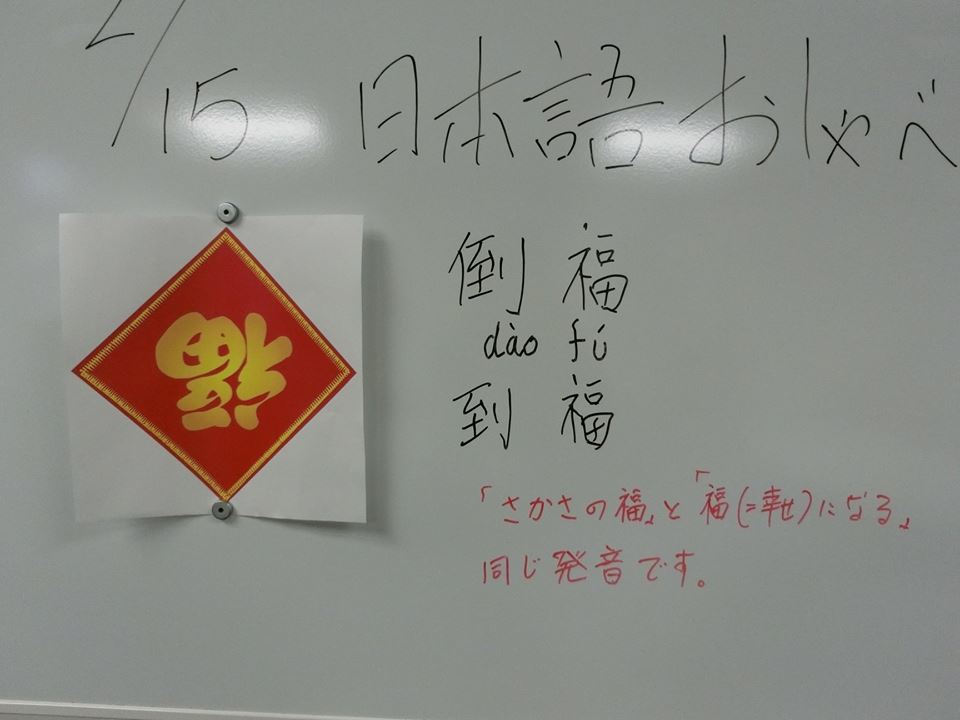 2/15 日本語おしゃべ
福
倒福
dào fú
到福
「さかさの福」と「福(=幸せ)になる」
同じ発音です。